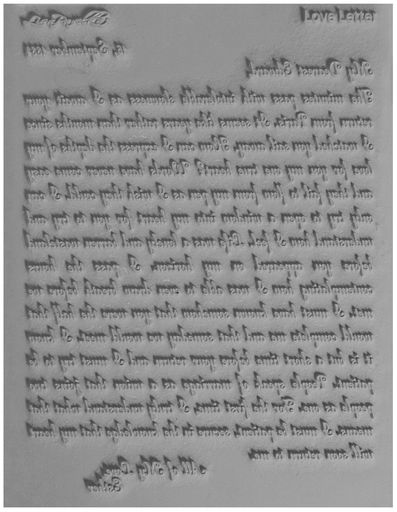 Love Letter
September
My Dearest Edward,
The minutes pass with intolerable slowness as I await your
return from Paris. It seems like years rather than months since
I watched you sail away. How can I express the depths of my
love for you my one true heart? Words have never come easy
and they fail to flow from my pen as I wish they could. I can
only try to open a window into my heart for you to try and
understand how I feel. Life was a lonely and barren wasteland
before you appeared on my horizon. I pass the hours
contemplating how I was able to even draw breath before we
met. I must have known somehow that you were the half that
would complete me and that someday we would meet. I know
it is but a short time before your return and I must try to be
patient. People speak of marriage as a union that joins two
people as one. For the first time, I truly understand what that
means. I must be patient, secure in the knowledge that my heart
will soon return to me.
All of My Love,
Esther